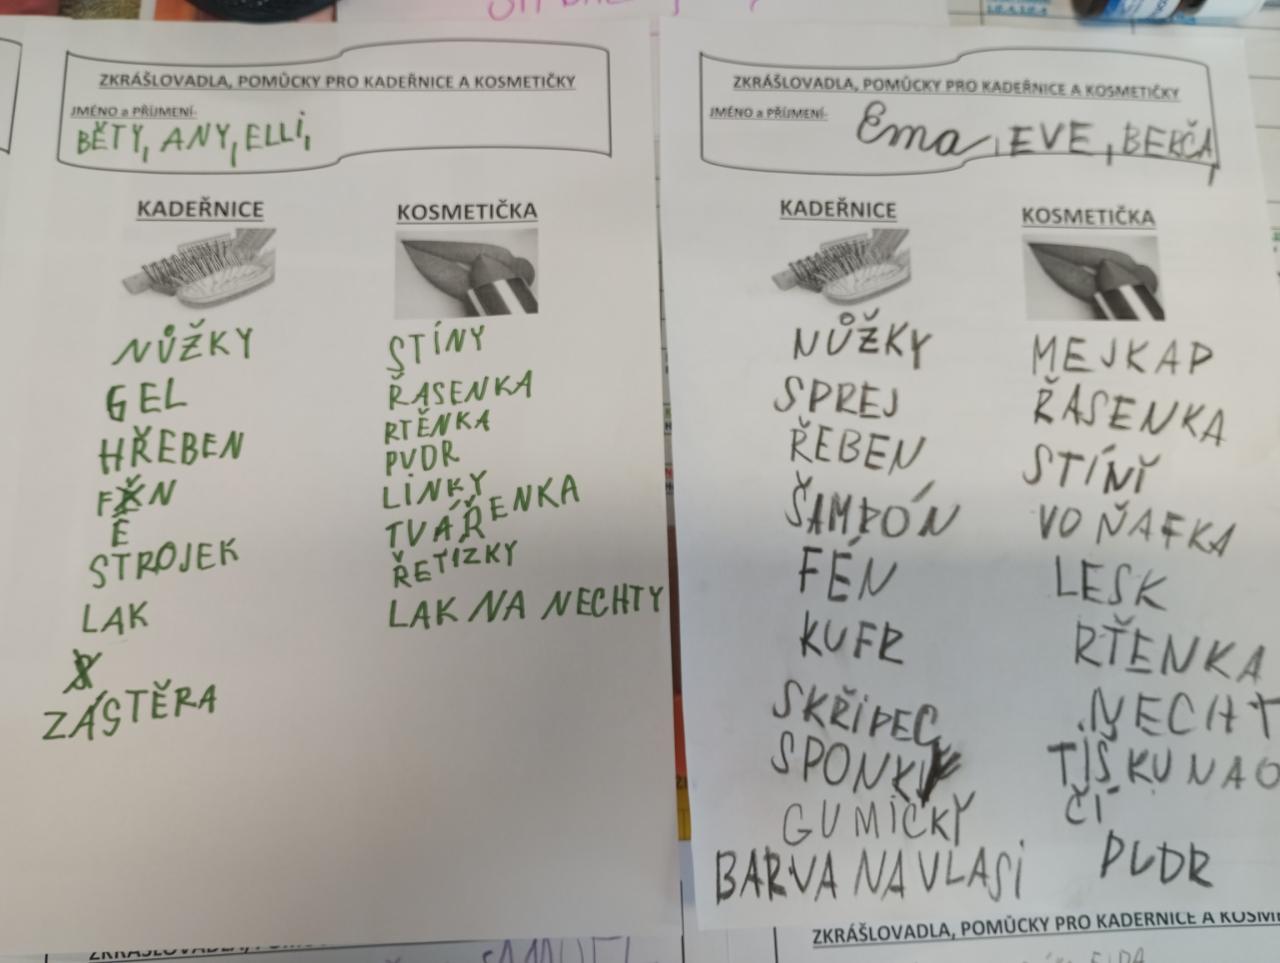 ZKRÁŠLOVADLA, POMŮCKY PRO KADEŘNICE A KOSMETIČKY
JMÉNO a PŘÍJMENÍ:
BĚTY, ANY, ELLI,
KADEŘNICE
KOSMETIČKA
NŮŽKY
GEL
HŘEBEN
FÉN
STROJEK
LAK
ZÁSTĚRA
STÍNY
ŘASENKA
RTĚNKA
PUDR
LINKY
TVÁŘENKA
ŘETIZKY
LAK NA NECHTY
ZKRÁŠLOVADLA, POMŮCKY PRO KADEŘNICE A KOSMETIČKY
JMÉNO a PŘÍJMENÍ:
Ema, EVE, BERČA
KADEŘNICE
KOSMETIČKA
NŮŽKY
SPREJ
ŘEBEN
ŠAMPÓN
FÉN
KUFR
SKŘIPEC
SPONKY
GUMIČKY
BARVA NA VLASI
MEJKAP
ŘASENKA
STÍNÍ
VOŇAFKA
LESK
RŤENKA
NECHT
TÍŠKU NA O
ČÍ
PUDR
ZKRÁŠLOVADLA, POMŮCKY PRO KADEŘNICE A KOSMETI